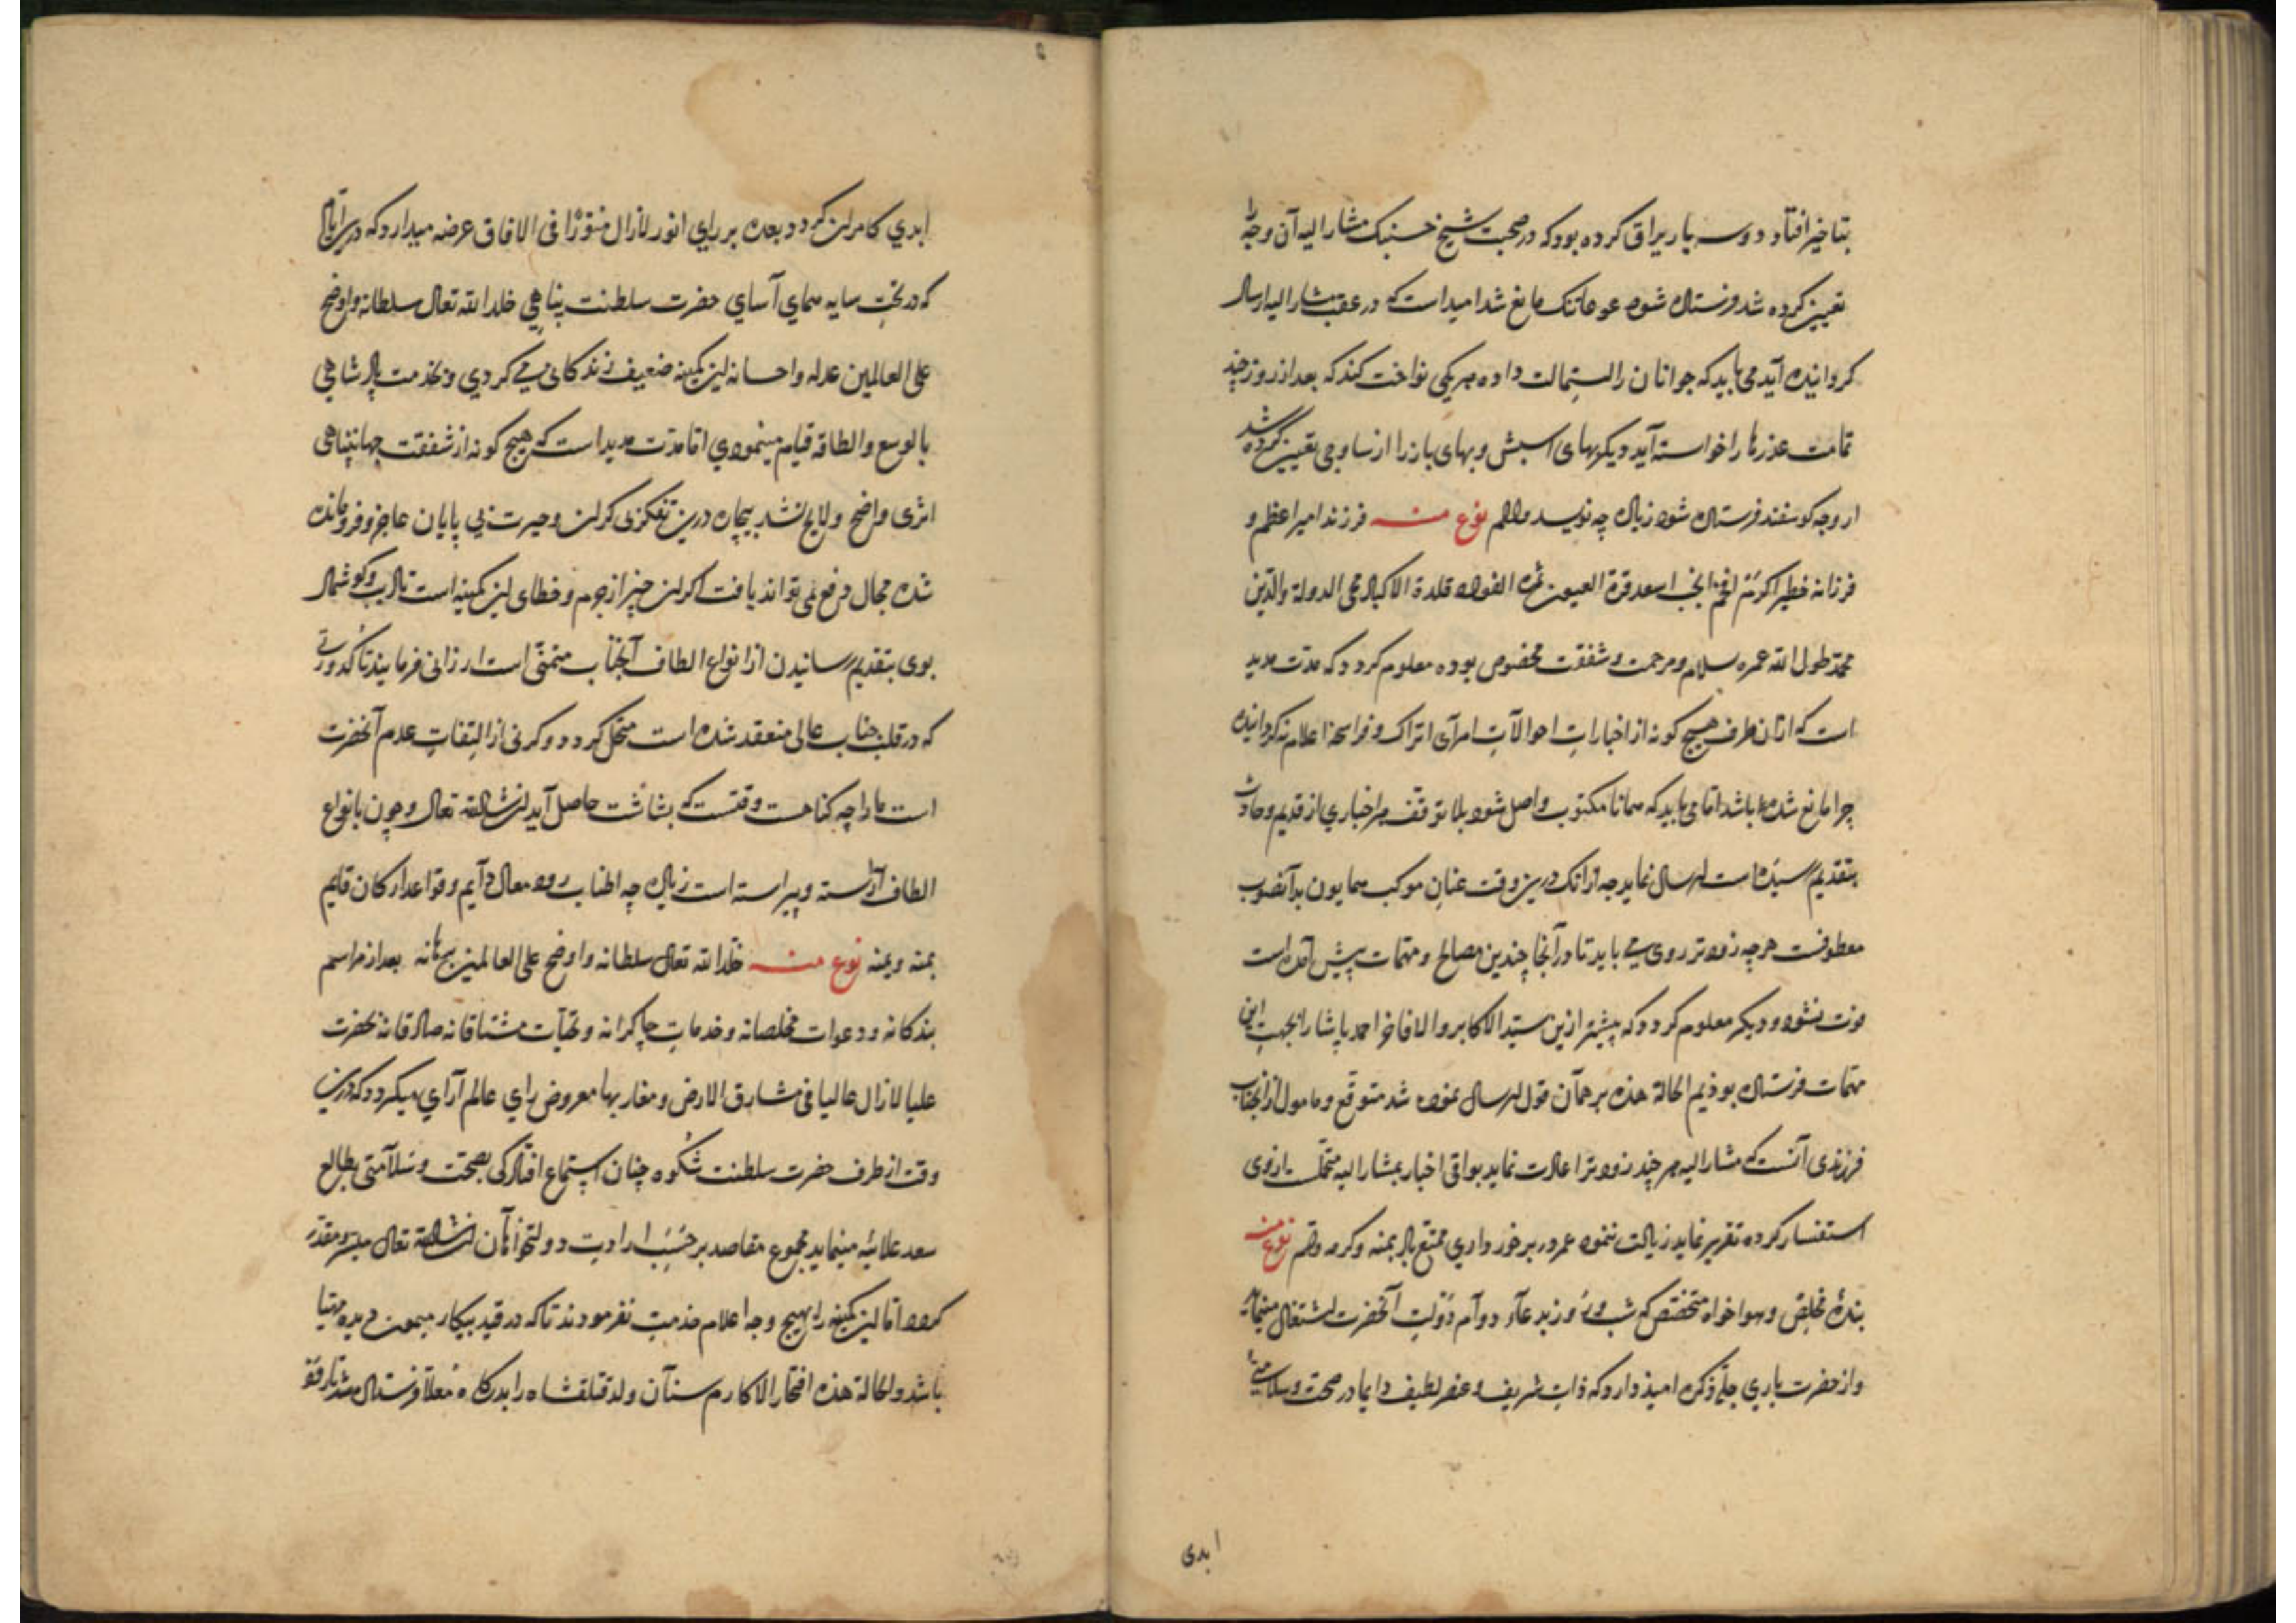 بتاخیر افتاد و دو سه بار یراق کرده بود که در صحبت شیخ حسنبک مشار الیه آن وجه را
تعیین کرده شد فرستاده شود عوعاتک مانع شد امید است که در عقب مشار الیه ارسال
کردانیده آید می باید که جوانان را استمالت داده هر یکی نواخت کند که بعد از روز چند
تمامت عذرها را خواسته آید دیکر بهای اسبش و بهای باز را از ساوجی تعیین کرده شد
از وجه کوسفند فرستاده شود زیاده چه نویسد والسلام نوع منه فرزند امیر اعظم و
فرزانه خطیر اکرم افخم انجب اسعد قرة العیون ثمرة الفواد قلدة الاکباد محی الدولة والدین
محمد طول الله عمره سلام و مرحمت و شفقت مخصوص بوده معلوم کردد که مدت مدید
است که ازان طرف هیچ کونه از اخبارات احوالات امرآی اتراک و فراسخه اعلام نکردانیده
چرا مانع شده باشد اما می باید که همانا مکتوب واصل شود بلا توقف هر اخباری از قدیم و حادث
بتقدیم رسیده است ارسال نماید چه ازانک درین وقت عنان موکب همایون بدآنصوب
معطوفت هر چه زودتر روی می باید تا در آنجا چندین مصالح و مهمات پیش آمده است
فوت نشود و دیکر معلوم کردد که پیشتر ازین سید الاکابر والافاخر احمد پاشا را بجهت این
مهمات فرستاده بوذیم الحالة هذه بر همآن قول ارسال نموده شد متوقع و مامول از آنجناب
فرزندی آنست که مشار الیه هر چند زودتر اعادت نماید بواقی اخبار بمشار الیه متحمل از وی
استفسار کرده تقریر نماید زیادت ننمود عمر در برخورداری ممتع باد بمنه وکرمه وتم نوع منه
بندۀ مخلص و هواخواه متخصص که شب و روز بدعآء دوآم دولت آنحضرت اشتغال مینماید
و از حضرت باری جل ذکره امیذ دارد که ذات شریف و عنصر لطیف دایما در صحت و سلامتئ
ابدی
ابدی کامران کردد بعده بر رای انور لازال منورا فی الافاق عرضه میدارد که درین ایام
که در تحت سایه همای آسای حضرت سلطنت پناهی خلد الله تعالی سلطانه واوضح
علی العالمین عدله واحسانه این کمینه ضعیف زندکانی می کردی و بخدمت پادشاهی
بالوسع والطاقه قیام مینمودی اما مدت مدید است که هیچ کونه از شفقت جهانپناهی
اثری واضح ولایح نشد بیچاره درین تفکر بی کران وحیرت بی پایان عاجز و فرومانده
شده مجال دفع نمی تواند یافت اکر این چیز از جرم و خطای این کمینه است تادیب و کوشمال
بوی بتقدیم رسانیدن از انواع الطاف آنجناب متمنی است ارزانی فرمایند تا کدورتی
که در قلب جناب عالی منعقد شده است منحل کردد و کرنی از التفات عدم آنحضرت
است ما را چه کناهست وقتست که بشاشت حاصل آید ان شاء الله تعالی و چون بانواع
الطاف آراسته و پیراسته است زیاده چه اطناب رود معالی دآیم و قواعد ارکان قایم
بمنه ویمنه نوع منه خلد الله تعالی سلطانه واوضح علی العالمین برهانه بعد از مراسم
بندکانه و دعوات مخلصانه و خدمات چاکرانه و تحیآت مشتاقانه صادقانه بحضرت
علیا لازال عالیا فی مشارق الارض ومغاربها معروض رای عالم آرآی میکردد که درین
وقت از طرف حضرت سلطنت شکوه چنان استماع افتاد کی بصحت و سلآمتی بطالع
سعد علائیه مینماید مجموع مقاصد بر حسب ارادت دولتخواهآن ان شاء الله تعالی میسر و مقدر
کردد اما این کمینه را بهیچ وجه اعلام خدمت نفرمودند تا که در قید بیکار میمون دیده مهیا
باشد والحالة هذه افتخار الاکارم سنآن ولد قتلقشاه را بدرکاه معلا فرستاده شد تا رقو